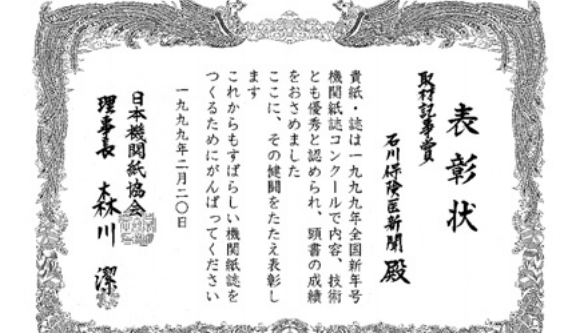 表彰状
取材記事賞
石川保険医新聞 殿
貴紙・誌は一九九九年全国新年号
機関紙誌コンクールで内容、技術
とも優秀と認められ、頭書の成績
をおさめました
ここに、その健闘をたたえ表彰し
ます
これからもすばらしい機関紙誌を
つくるためにがんばってください
一九九九年二月二〇日
日本機関紙協会
理事長 森川 潔